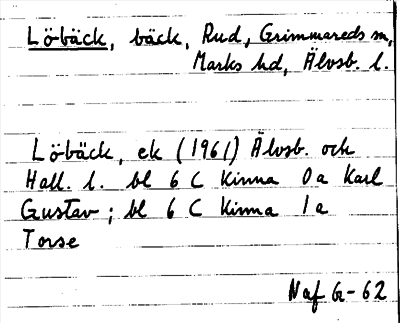 Löbäck, bäck, Rud, Grimmareds sn,
Marks hd, Älvsb. l.
Löbäck, ek (1961) Älvsb. och
Hall. l. bl 6 C Kinna 0a Karl
Gustav; bl 6 C Kinna 1a
Torse
Naf G-62